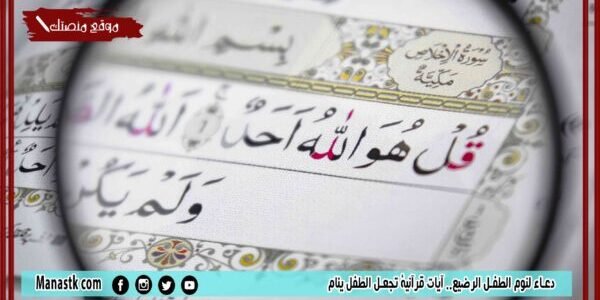 موقع منصتك
سُورَةُ الْإِخْلَاصِ
مَكِّيَّة
بِسْمِ اللهِ
قُلْ هُوَ اللهُ اَحَدٌ ۝ اَللهُ
وَلَمْ يَكُنْ
دعاء لنوم الطفل الرضيع.. آيات قرآنية تجعل الطفل ينام
Manastk com